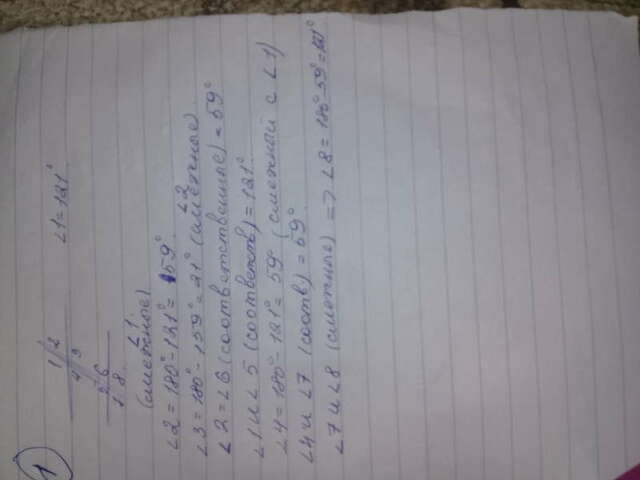 1
∠1=121°
1 2
4 3
5 6
1 8
(смежные) ∠1
∠2=180°-121°=59°
∠3=180°-159°=21° (смежные) ∠2
∠2=∠6 (соответственные)=59°
∠1 и ∠5 (соответств)=121°
∠4=180°-121°=59° (смежный с ∠1)
∠4 и ∠7 (соотв)=59°
∠7 и ∠8 (смежные) => ∠8=180°-59°=121°